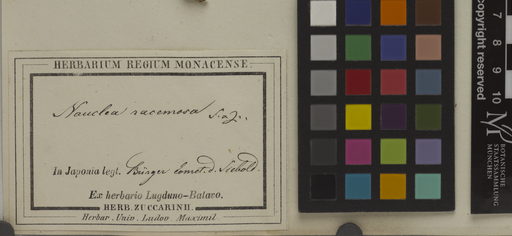 HERBARIUM REGIUM MONACENSE
Nauclea racemosa S. & Z.
In Japonia legt. Bürger comot. d. Siebold.
Ex herbario Lugduno-Batavo.
HERB. ZUCCARINII.
Herbar. Univ. Ludov. Maximil.
copyright reserved
7
8
9
10
M
BOTANISCHE
STAATSSAMMLUNG
MÜNCHEN